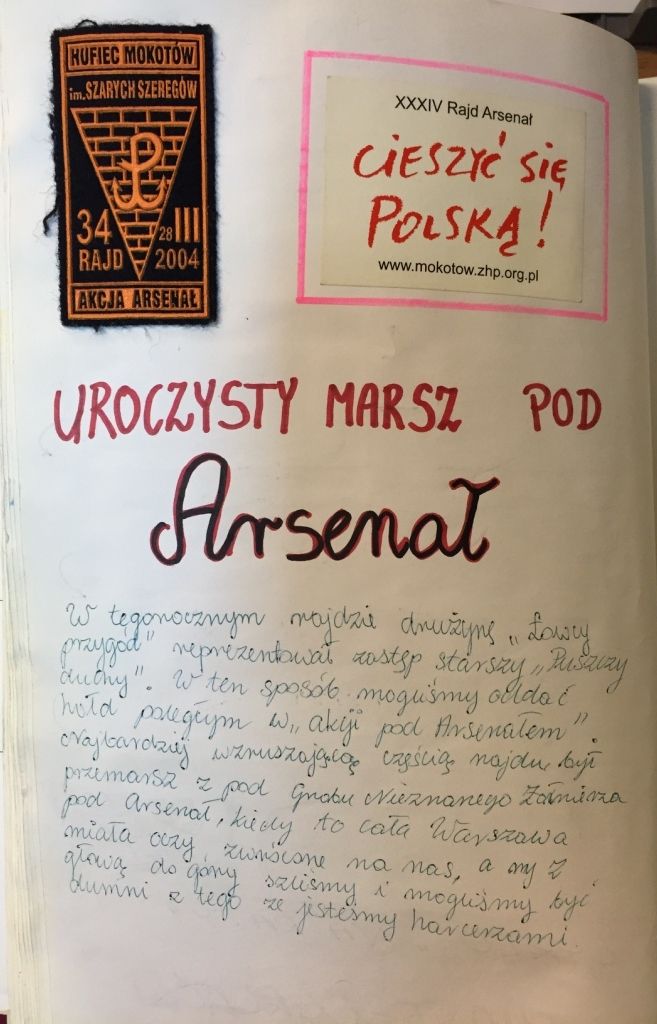 HUFIEC MOKOTÓW
im. SZARYCH SZEREGÓW
34 28 III
RAJD 2004
AKCJA ARSENAŁ
XXXIV Rajd Arsenał
CIESZYĆ SIĘ
POLSKĄ!
www.mokotow.zhp.org.pl
UROCZYSTY MARSZ POD
Arsenał
W tegorocznym rajdzie drużynę „Łowcy
przygód" reprezentował zastęp starszy „Puszczy
duchy". W ten sposób mogliśmy oddać
hołd poległym w „akcji pod Arsenałem".
Najbardziej wzruszającą częścią rajdu, był
przemarsz z pod Grobu Nieznanego Żołnierza
pod Arsenał, kiedy to cała Warszawa
miała oczy zwrócone na nas, a my z
głową do góry szliśmy i mogliśmy być
dumni z tego że jesteśmy harcerzami.